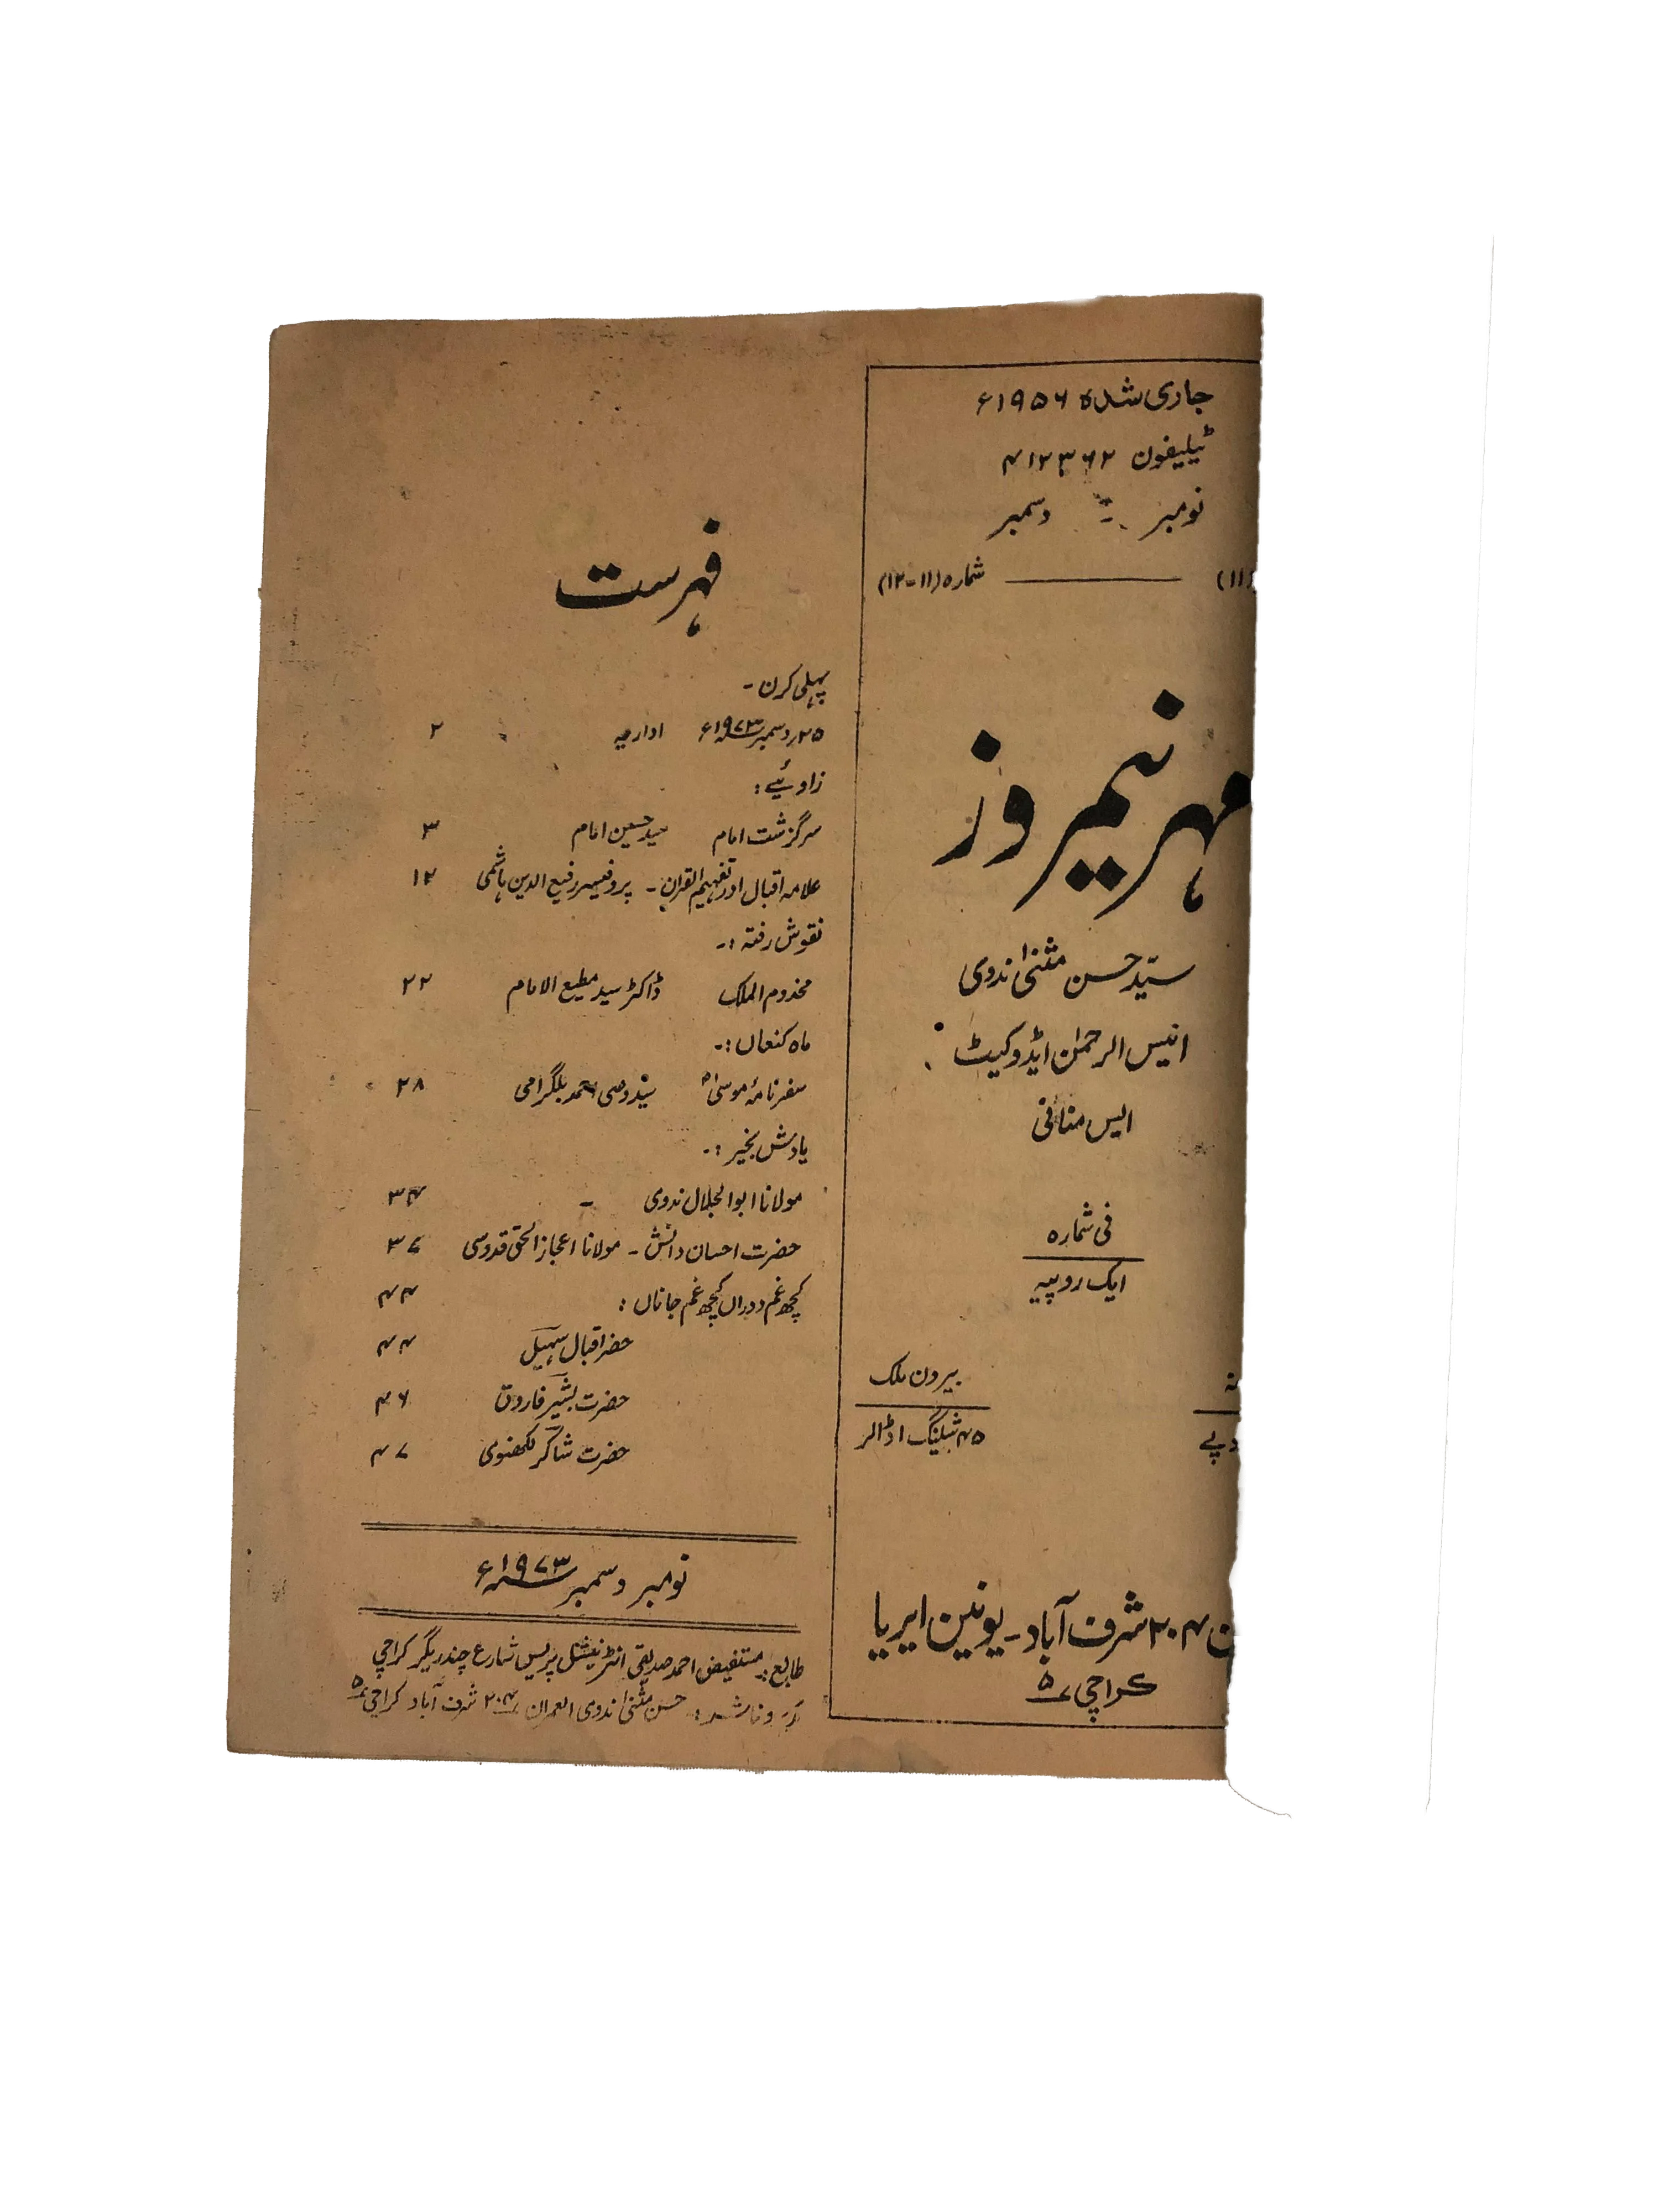 جاری شدہ ۱۹۵۶ء
ٹیلیفون ۴۱۲۳۶۲
نومبر - دسمبر
(۱۱) شمارہ (۱۱-۱۲)
مہر نیمروز
سیّد حسن مثنیٰ ندوی
انیس الرحمٰن ایڈوکیٹ
ایس منافی
فی شمارہ
ایک روپیہ
بیرون ملک
۴۵ شیلنگ ۱ ڈالر
۲۰۴ شرف آباد - یونین ایریا
کراچی ۵
فہرست
پہلی کرن -
۲۵ر دسمبر ۱۹۷۳ء اداریہ ۲
زاویئے :
سرگزشت امام سید حسین امام ۳
علامہ اقبال اور تفہیم القرآن - پروفیسر رفیع الدین ہاشمی ۱۲
نقوش رفتہ :-
مخدوم الملک ڈاکٹر سید مطیع الامام ۲۲
ماہ کنعاں :-
سفر نامۂ موسیٰ سید وصی احمد بلگرامی ۲۸
یادش بخیر :-
مولانا ابو الجلال ندوی - ۳۴
حضرت احسان دانش - مولانا اعجاز الحق قدوسی ۳۷
کچھ غم دوراں کچھ غم جاناں : ۴۴
حضرت اقبال سہیل ۴۴
حضرت بشیر فاروق ۴۶
حضرت شاکر لکھنوی ۴۷
نومبر دسمبر ۱۹۷۳ء
طابع :- مستفیض احمد صدیقی انٹرنیشنل پریس شارع چندریگر کراچی
و ناشر :- حسن مثنیٰ ندوی العمران ۲۰۴ شرف آباد کراچی ۵